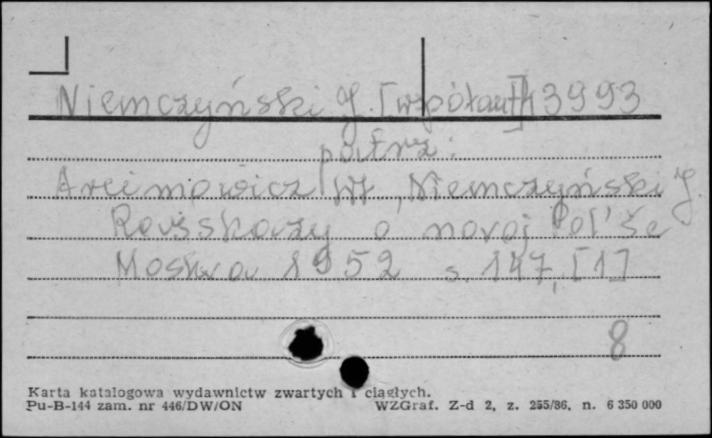 Niemczyński J. [współaut] 13993
patrz:
Arcimowicz W, Niemczyński J.
Rasskazy o novoj Pol'še
Moskva 1952 s. 147, [1]
8
Karta katalogowa wydawnictw zwartych i ciągłych.
Pu-B-144 zam. nr 446/DW/ON WZGraf. Z-d 2, z. 255/86, n. 6 350 000